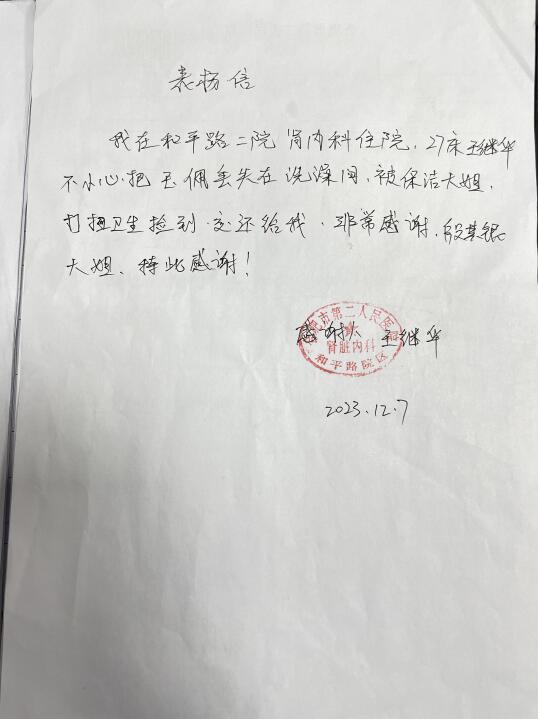 表扬信
我在和平路二院肾内科住院,27床王继华
不小心把玉佩丢失在洗澡间,被保洁大姐,
打扫卫生捡到.交还给我,非常感谢,殷其银
大姐、特此感谢!
感谢人 王继华
市第二人民医院
肾脏内科
和平路院区
2023.12.7